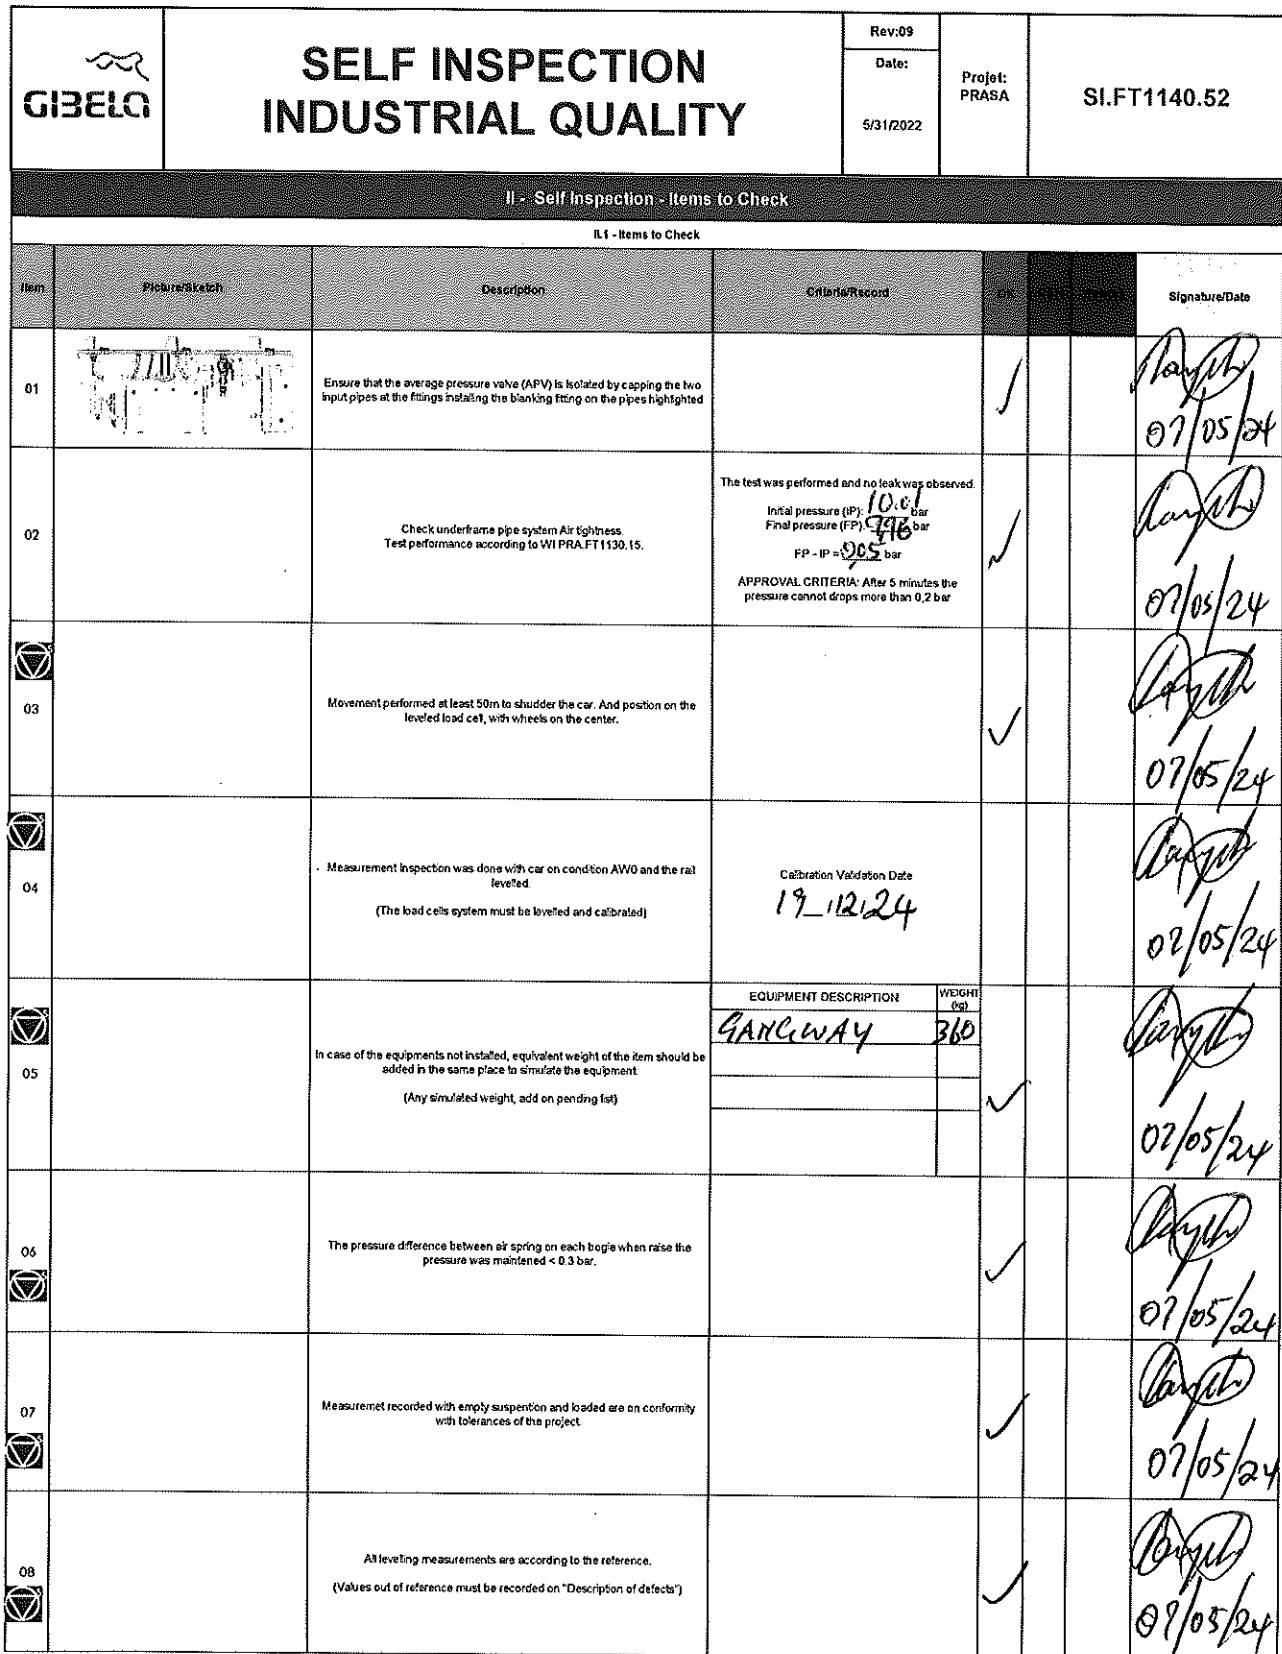 GIBELA
SELF INSPECTION
INDUSTRIAL QUALITY
Rev:09
Date:
5/31/2022
Projet:
PRASA
SI.FT1140.52
II - Self Inspection - Items to Check
II.1 - Items to Check
Item
Picture/Sketch
Description
Criteria/Record
OK
Signature/Date
01
Ensure that the average pressure valve (APV) is isolated by capping the two
input pipes at the fittings installing the blanking fitting on the pipes highlighted
07/05/24
02
Check underframe pipe system Air tightness.
Test performance according to WI PRA.FT1130.15.
The test was performed and no leak was observed.
Initial pressure (IP): 10.01 bar
Final pressure (FP): 9.96 bar
FP - IP = 0.05 bar
APPROVAL CRITERIA: After 5 minutes the
pressure cannot drops more than 0,2 bar
07/05/24
03
Movement performed at least 50m to shudder the car. And position on the
leveled load cell, with wheels on the center.
07/05/24
04
Measurement inspection was done with car on condition AW0 and the rail
levelled.
(The load cells system must be levelled and calibrated)
Calibration Validation Date
19/12/24
07/05/24
05
In case of the equipments not installed, equivalent weight of the item should be
added in the same place to simulate the equipment
(Any simulated weight, add on pending list)
EQUIPMENT DESCRIPTION
WEIGHT
(kg)
GANGWAY 360
07/05/24
06
The pressure difference between air spring on each bogie when raise the
pressure was maintened < 0.3 bar.
07/05/24
07
Measuremet recorded with empty suspention and loaded are on conformity
with tolerances of the project.
07/05/24
08
All leveling measurements are according to the reference.
(Values out of reference must be recorded on "Description of defects")
07/05/24